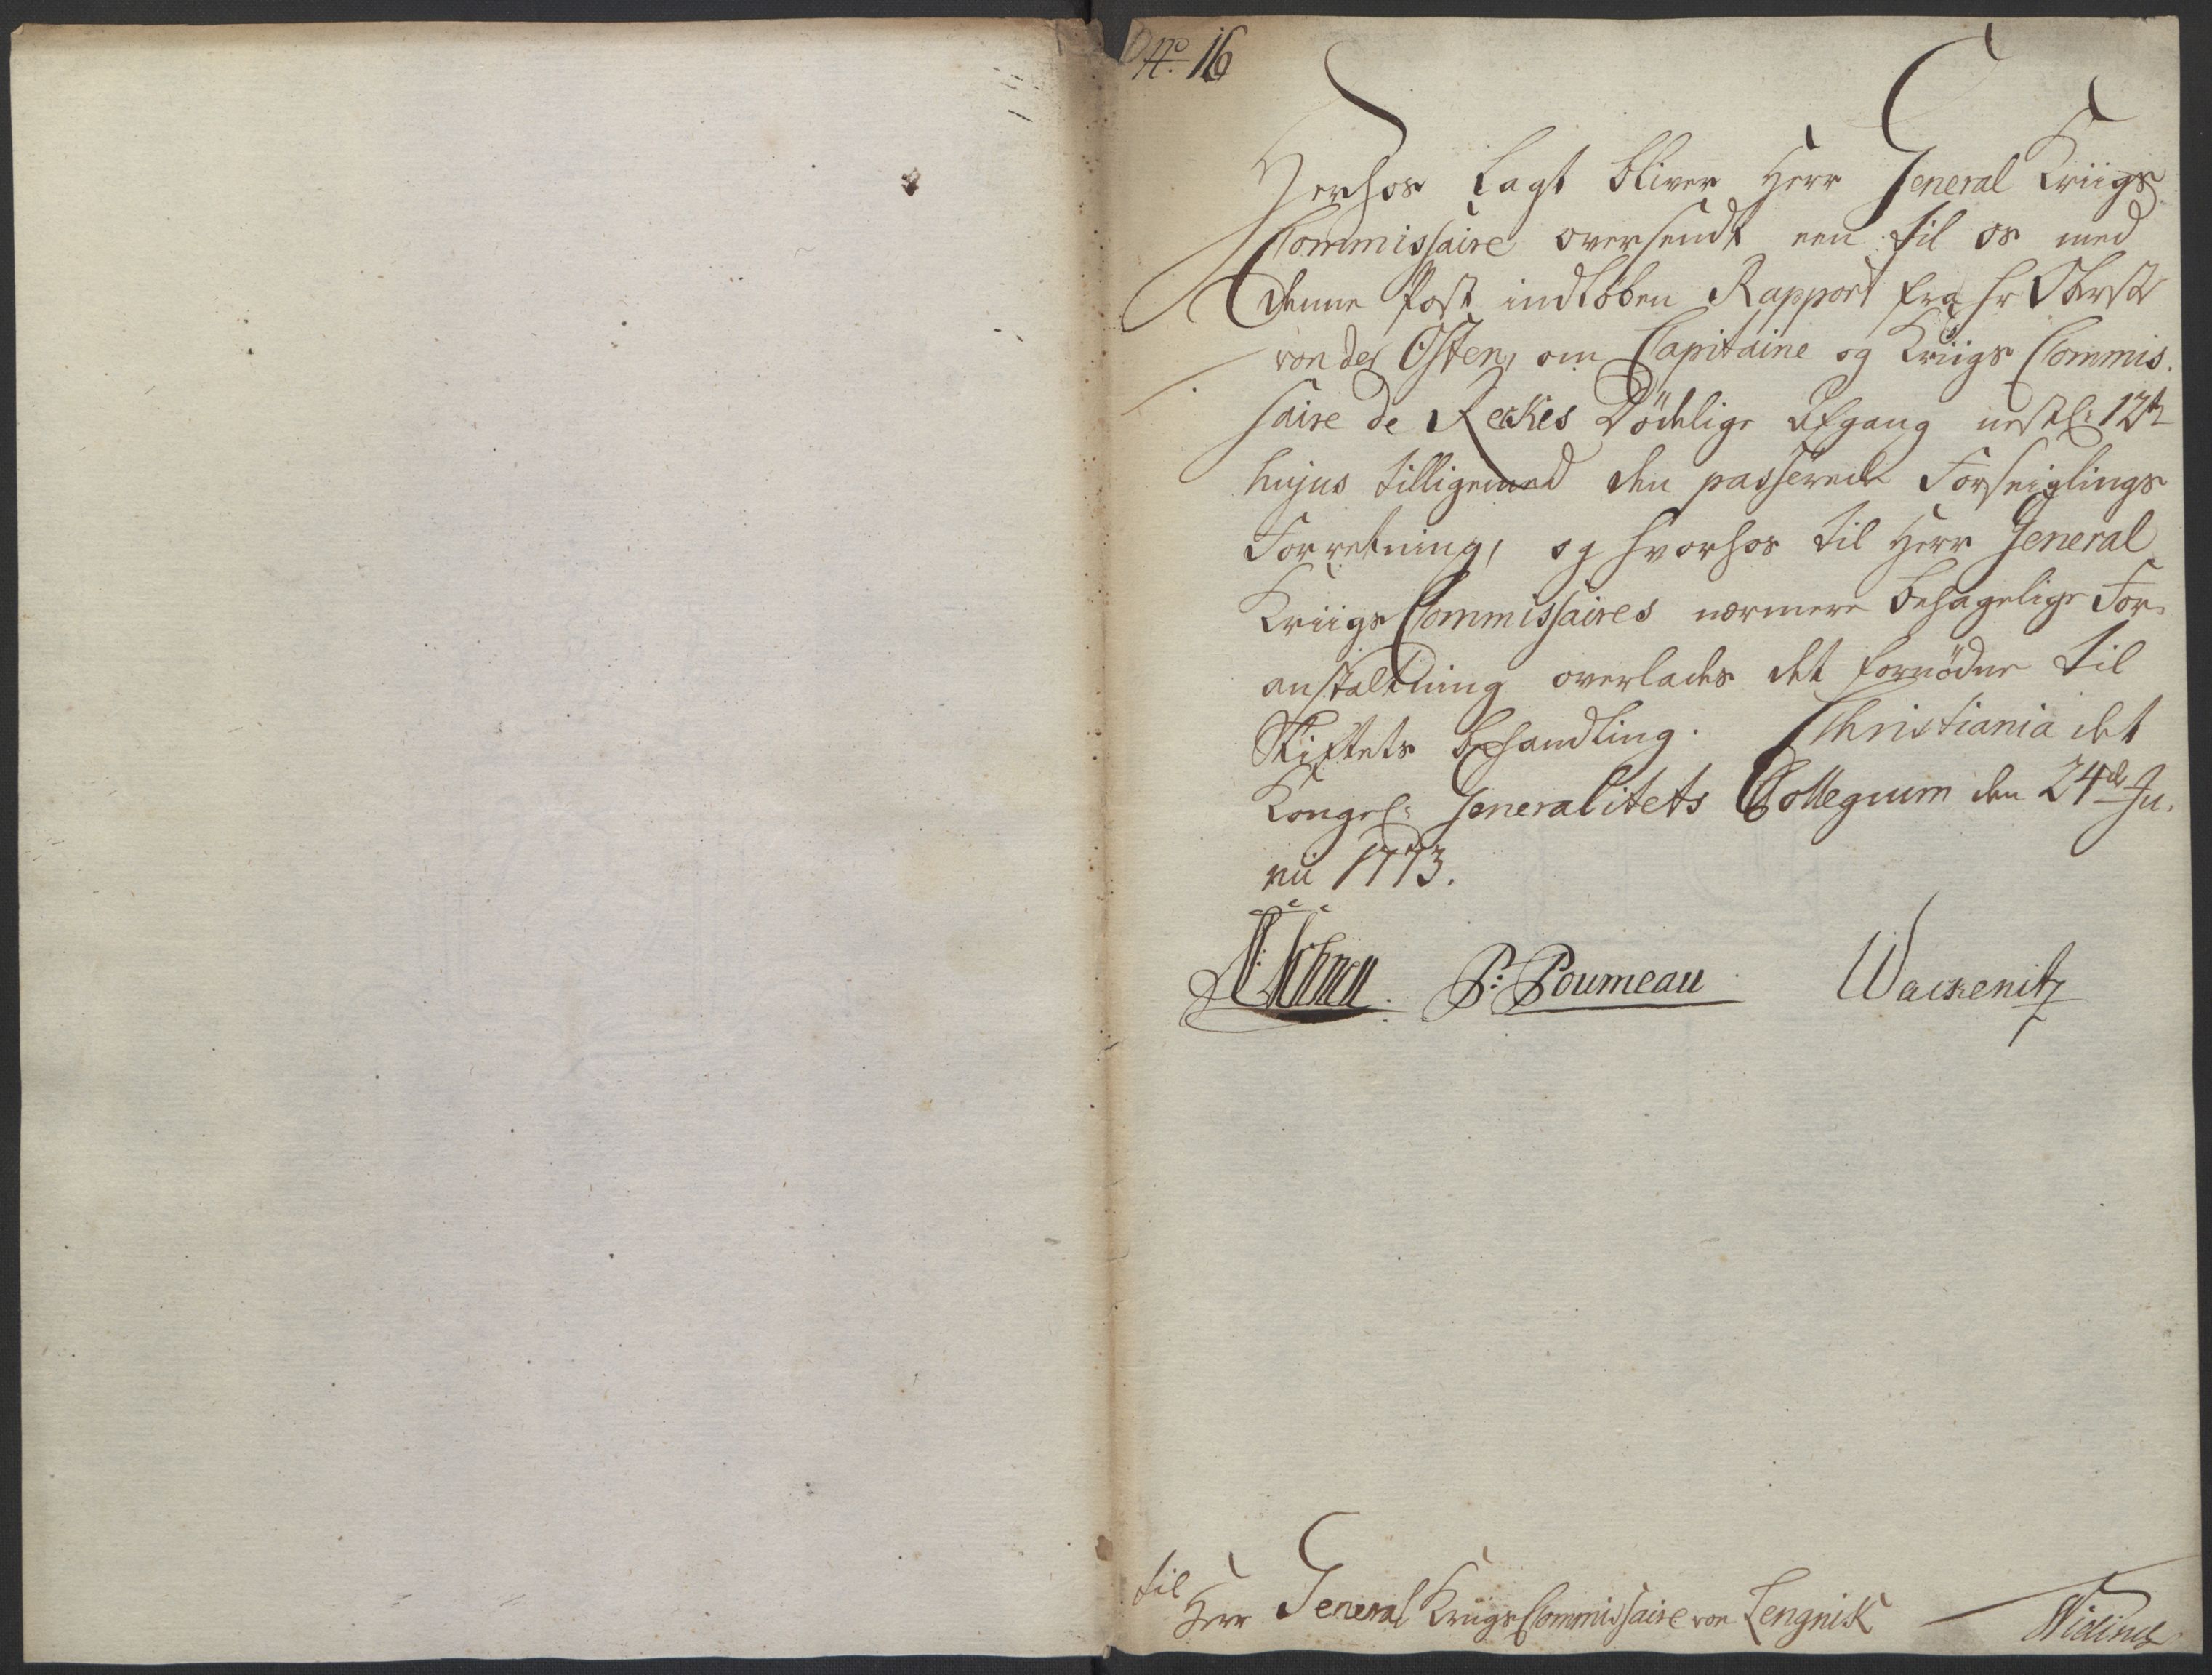 No. 16
Herhos Lagt bliver Herr General Kriigs
Commissaire oversendt een til os med
denne Post indløben Rapport fra Hr Obrst
von der Østen, om Capitaine og Kriigs Commis-
saire de Reckes Dödelige Afgang nestl: 12te
hujus tilligemed den passerede Forseiglings
Forretning, og hvorhos til Herr General
Kriigs Commissaires nærmere behagelige For-
anstaltning overlades det fornödne til
Skiftets behandling. Christiania det
Kongel: Generalitets Collegium den 24de Ju-
nii 1773.
P: Poumeau Wackenitz
til
Herr General Kriigs Commissaire von Lengnik